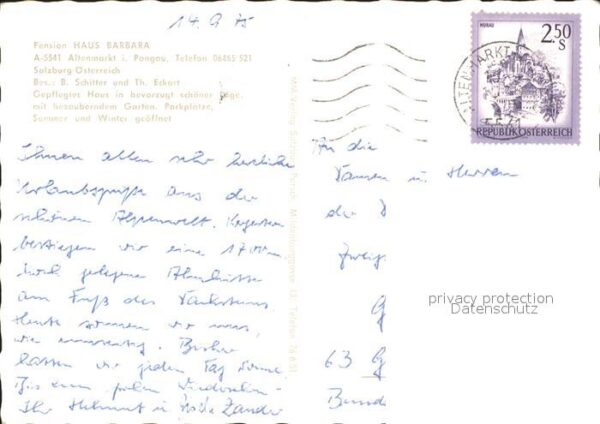 14. 9. 75
Pension HAUS BARBARA
A-5541 Altenmarkt i. Pongau, Telefon 06465 521
Salzburg-Österreich
Bes.: B. Schitter und Th. Eckart
Gepflegtes Haus in bevorzugt schöner Lage,
mit bezauberndem Garten. Parkplätze,
Sommer und Winter geöffnet
MURAU
2.50
S
REPUBLIK ÖSTERREICH
ALTENMARKT
Ihnen allen sehr herzliche
Urlaubsgrüße aus der
schönen Alpenwelt.
bestiegen wir eine 1700m
hoch gelegene Almhütte
am Fuß des Dachsteins
Heute sonnen wir uns,
wie
lassen wir jeden Tag
Bis zum frohen Wiedersehen
Ihr Helmut u. Zander
Für die
Damen u. Herren
der
Zweig
G
63 G
Bund
privacy protection
Datenschutz